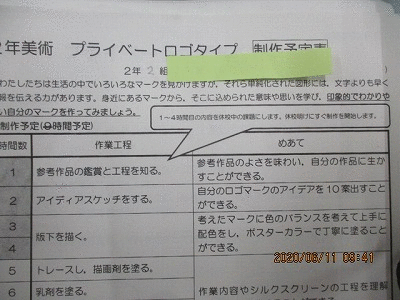 2年美術 プライベートロゴタイプ 制作予定表
2年 2 組
わたしたちは生活の中でいろいろなマークを見かけますが、それら単純化された図形には、文字よりも早く
報を伝える力があります。身近にあるマークから、そこに込められた意味や思いを学び、印象的でわかりや
い自分のマークを作ってみましょう。
1~4時間目の内容を休校中の課題にします。休校明けにすぐ制作を開始します。
制作予定(8時間予定)
時間数 作業工程 めあて
1 参考作品の鑑賞と工程を知る。 参考作品のよさを味わい、自分の作品に生か
すことができる。
2 アイディアスケッチをする。 自分のロゴマークのアイデアを10案出すこと
ができる。
3 版下を描く。 考えたマークに色のバランスを考えて上手に
4 配色をし、ポスターカラーで丁寧に塗ることが
できる。
5 トレースし、描画剤を塗る。
6 乳剤を塗る。 作業内容やシルクスクリーンの工程を理解
2020/06/11 09:41